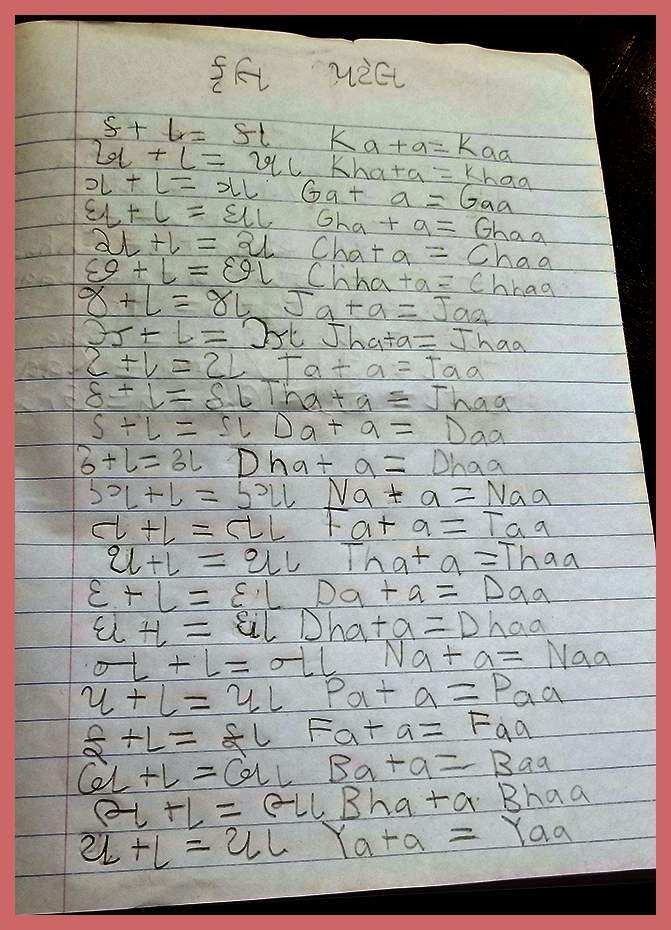 પટેલ
ક + ા = કા Ka + a = Kaa
ખ + ા = ખા Kha + a = Khaa
ગ + ા = ગા Ga + a = Gaa
ઘ + ા = ઘા Gha + a = Ghaa
ચ + ા = ચા Cha + a = Chaa
છ + ા = છા Chha + a = Chhaa
જ + ા = જા Ja + a = Jaa
ઝ + ા = ઝા Jha + a = Jhaa
ટ + ા = ટા Ta + a = Taa
ઠ + ા = ઠા Tha + a = Thaa
ડ + ા = ડા Da + a = Daa
ઢ + ા = ઢા Dha + a = Dhaa
ણ + ા = ણા Na + a = Naa
ત + ા = તા Ta + a = Taa
થ + ા = થા Tha + a = Thaa
દ + ા = દા Da + a = Daa
ધ + ા = ધા Dha + a = Dhaa
ન + ા = ના Na + a = Naa
પ + ા = પા Pa + a = Paa
ફ + ા = ફા Fa + a = Faa
બ + ા = બા Ba + a = Baa
ભ + ા = ભા Bha + a Bhaa
ય + ા = યા Ya + a = Yaa